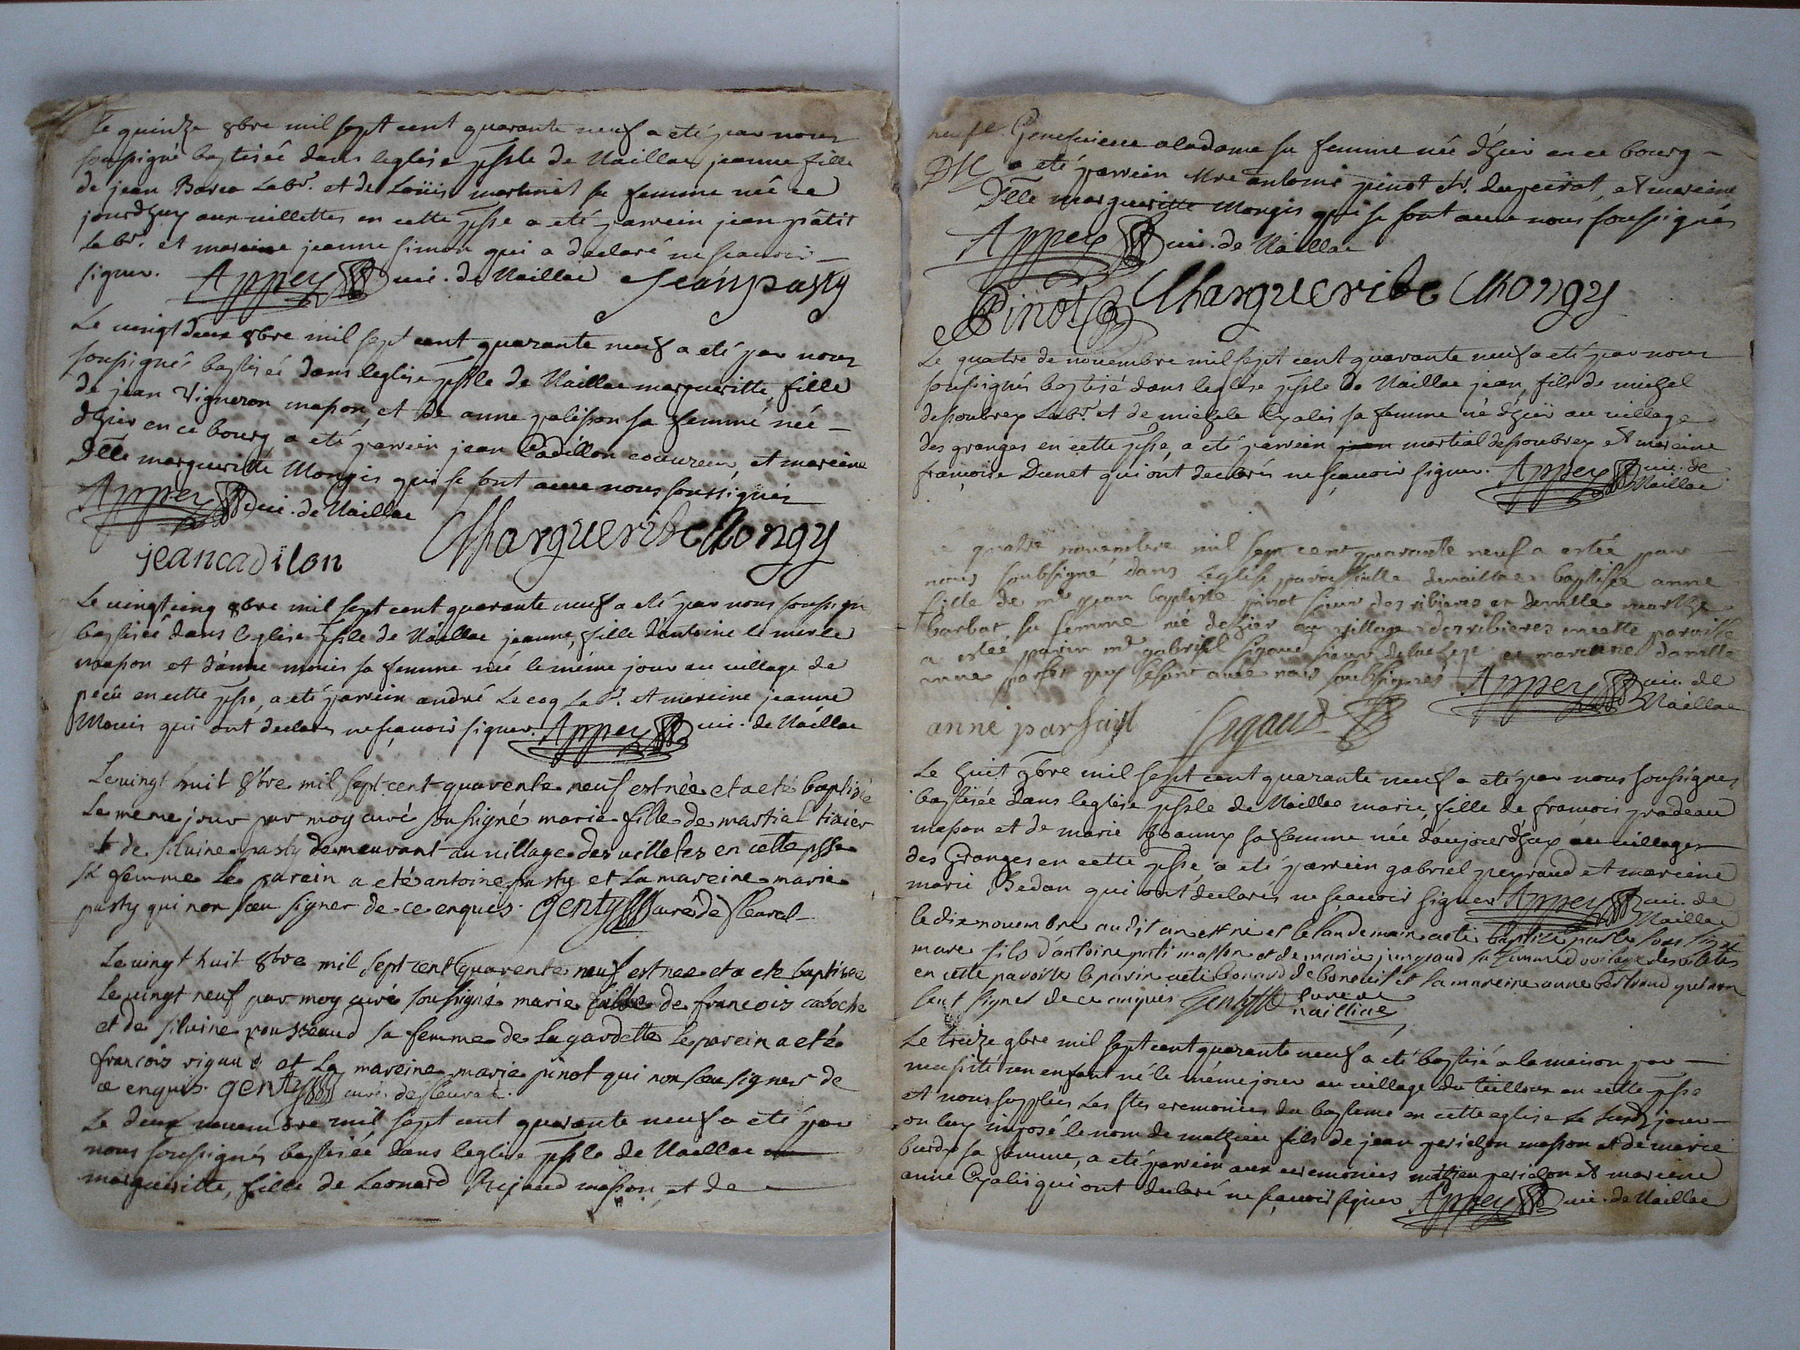 Le quinze 8bre mil sept cent quarante neuf a eté par nous
soussigné baptiséé dans leglise psle de Naillac jeanne fille
de jean Barca Labr. et de Loüise martinet sa femme née ce
jourdhuy aux uillettes en cette psse a eté parrein jean patit
Labr. et mareine jeanne simon qui a declaré ne sçauoir
signer. Appey cui. de Naillac jean pasty
Le uingt deux 8bre mil sept cent quarante neuf a eté par nous
soussignés baptisée dans leglise psle de Naillac margueritte, fille
de jean Vigneron masson, et de anne palisson sa femme née
dhier en ce bourg a eté parrein jean Cadillon couureur, et mareine
Delle margueritte Mongis qui se sont auec nous soussignés
Appey cui. de Naillac
jean cadilon Margueritte Mongy
Le uingt cinq 8bre mil sept cent quarante neuf a eté par nous soussigné
baptiséé dans leglise psle de Naillac jeanne, fille dantoine le merle
masson et d'anne mouis sa femme née le même jour au uillage de
en cette psse, a eté parrein andré Lecoq Labr. et mareine jeanne
Mouis qui ont declaré ne sçauoir signer. Appey cui. de Naillac
Le uingt huit 8bre mil sept cent quarente neuf est née et a eté baptisée
Le meme jour par moy curé sousigné marie fille de martial tixier
et de siluine pasty demeurant au uillage des uilletes en cette psse
sa femme Le parain a eté antoine pasty et La mareine marie
pasty qui non sceu signer de ce enquis. Genty curé de fleurat
Le uingt huit 8bre mil sept cent quarente neuf est née et a eté baptisée
Le uingt neuf par moy curé sousigné marie fille de francois caboche
et de siluine rousseaud sa femme de Lagardette Le parein a eté
francois rigaud et La mareine marie pinot qui non sceu signer de
ce enquis. genty curé de fleurat.
Le deux nouembre mil sept cent quarante neuf a eté par
nous soussignés baptiséé dans leglise psle de Naillac
margueritte, fille de Leonard Rejaud masson, et de
a ladame sa femme née d'hier en ce bourg
a eté parrein Mre antoine pinot sr. dupeirat, et mareine
Delle margueritte Mongis qui se sont auec nous soussignés
Appey cui. de Naillac
Pinot Margueritte Mongy
Le quatre de nouembre mil sept cent quarante neuf a eté par nous
soussignés baptisé dans leglise psle de Naillac jean, fils de michel
depoubrex Labr. et de michele Chalis sa femme né d'hier au uillage
des granges en cette psse, a eté parrein martial depoubrex et mareine
françoise Dunet qui ont declarés ne sçauoir signer. Appey cui. de
Naillac
Le quatre novembre mil sept cent quarante neuf a estée par
nous soubsigné dans Leglise paroissialle denaillac baptisée anne
fille de mr jean baptiste pinot sieur des ribieres et demlle marthe
barbat sa femme née dehier au village des ribieres en cette paroisse
a estée parin mr gabriel sigaud sieur et maraine damlle
anne parfet quy se sont avec nous soubsignes Appey cui. de
Naillac
anne parfait Sigaud
Le huit 9bre mil sept cent quarante neuf a eté par nous soussignés
baptisée dans leglise psle de Naillac marie, fille de francois pradeau
masson et de marie sa femme née daujourdhuy au uillage
des Granges en cette psse a eté parrein gabriel peyraud et mareine
marie Bedan qui ont declarés ne sçauoir signer Appey cui. de
Naillac
le dix nouembre audit an est né et le landemain a eté baptizé par le sous signé
marc fils d'antoine masson et de marie jungeaud sa femme du uilage des viletes
en cette paroisse le parin a eté leonard de bonoeuil et la mareine anne Bertrand qui non
sceut signer de ce anquis Genty Cure de
naillac
Le treize 9bre mil sept cent quarante neuf a eté baptisé a la maison par
necessité un enfant né le même jour au uillage du tulloux en cette psse
et nous suppléés Les stes ceremonies du baptême en cette eglise Le jour
on luy imposé le nom de mathieu fils de jean perichon masson et de marie
sa femme, a eté parrein aux ceremonies mathieu perichon et mareine
anne Chalis qui ont declaré ne sçauoir signer Appey cui. de Naillac